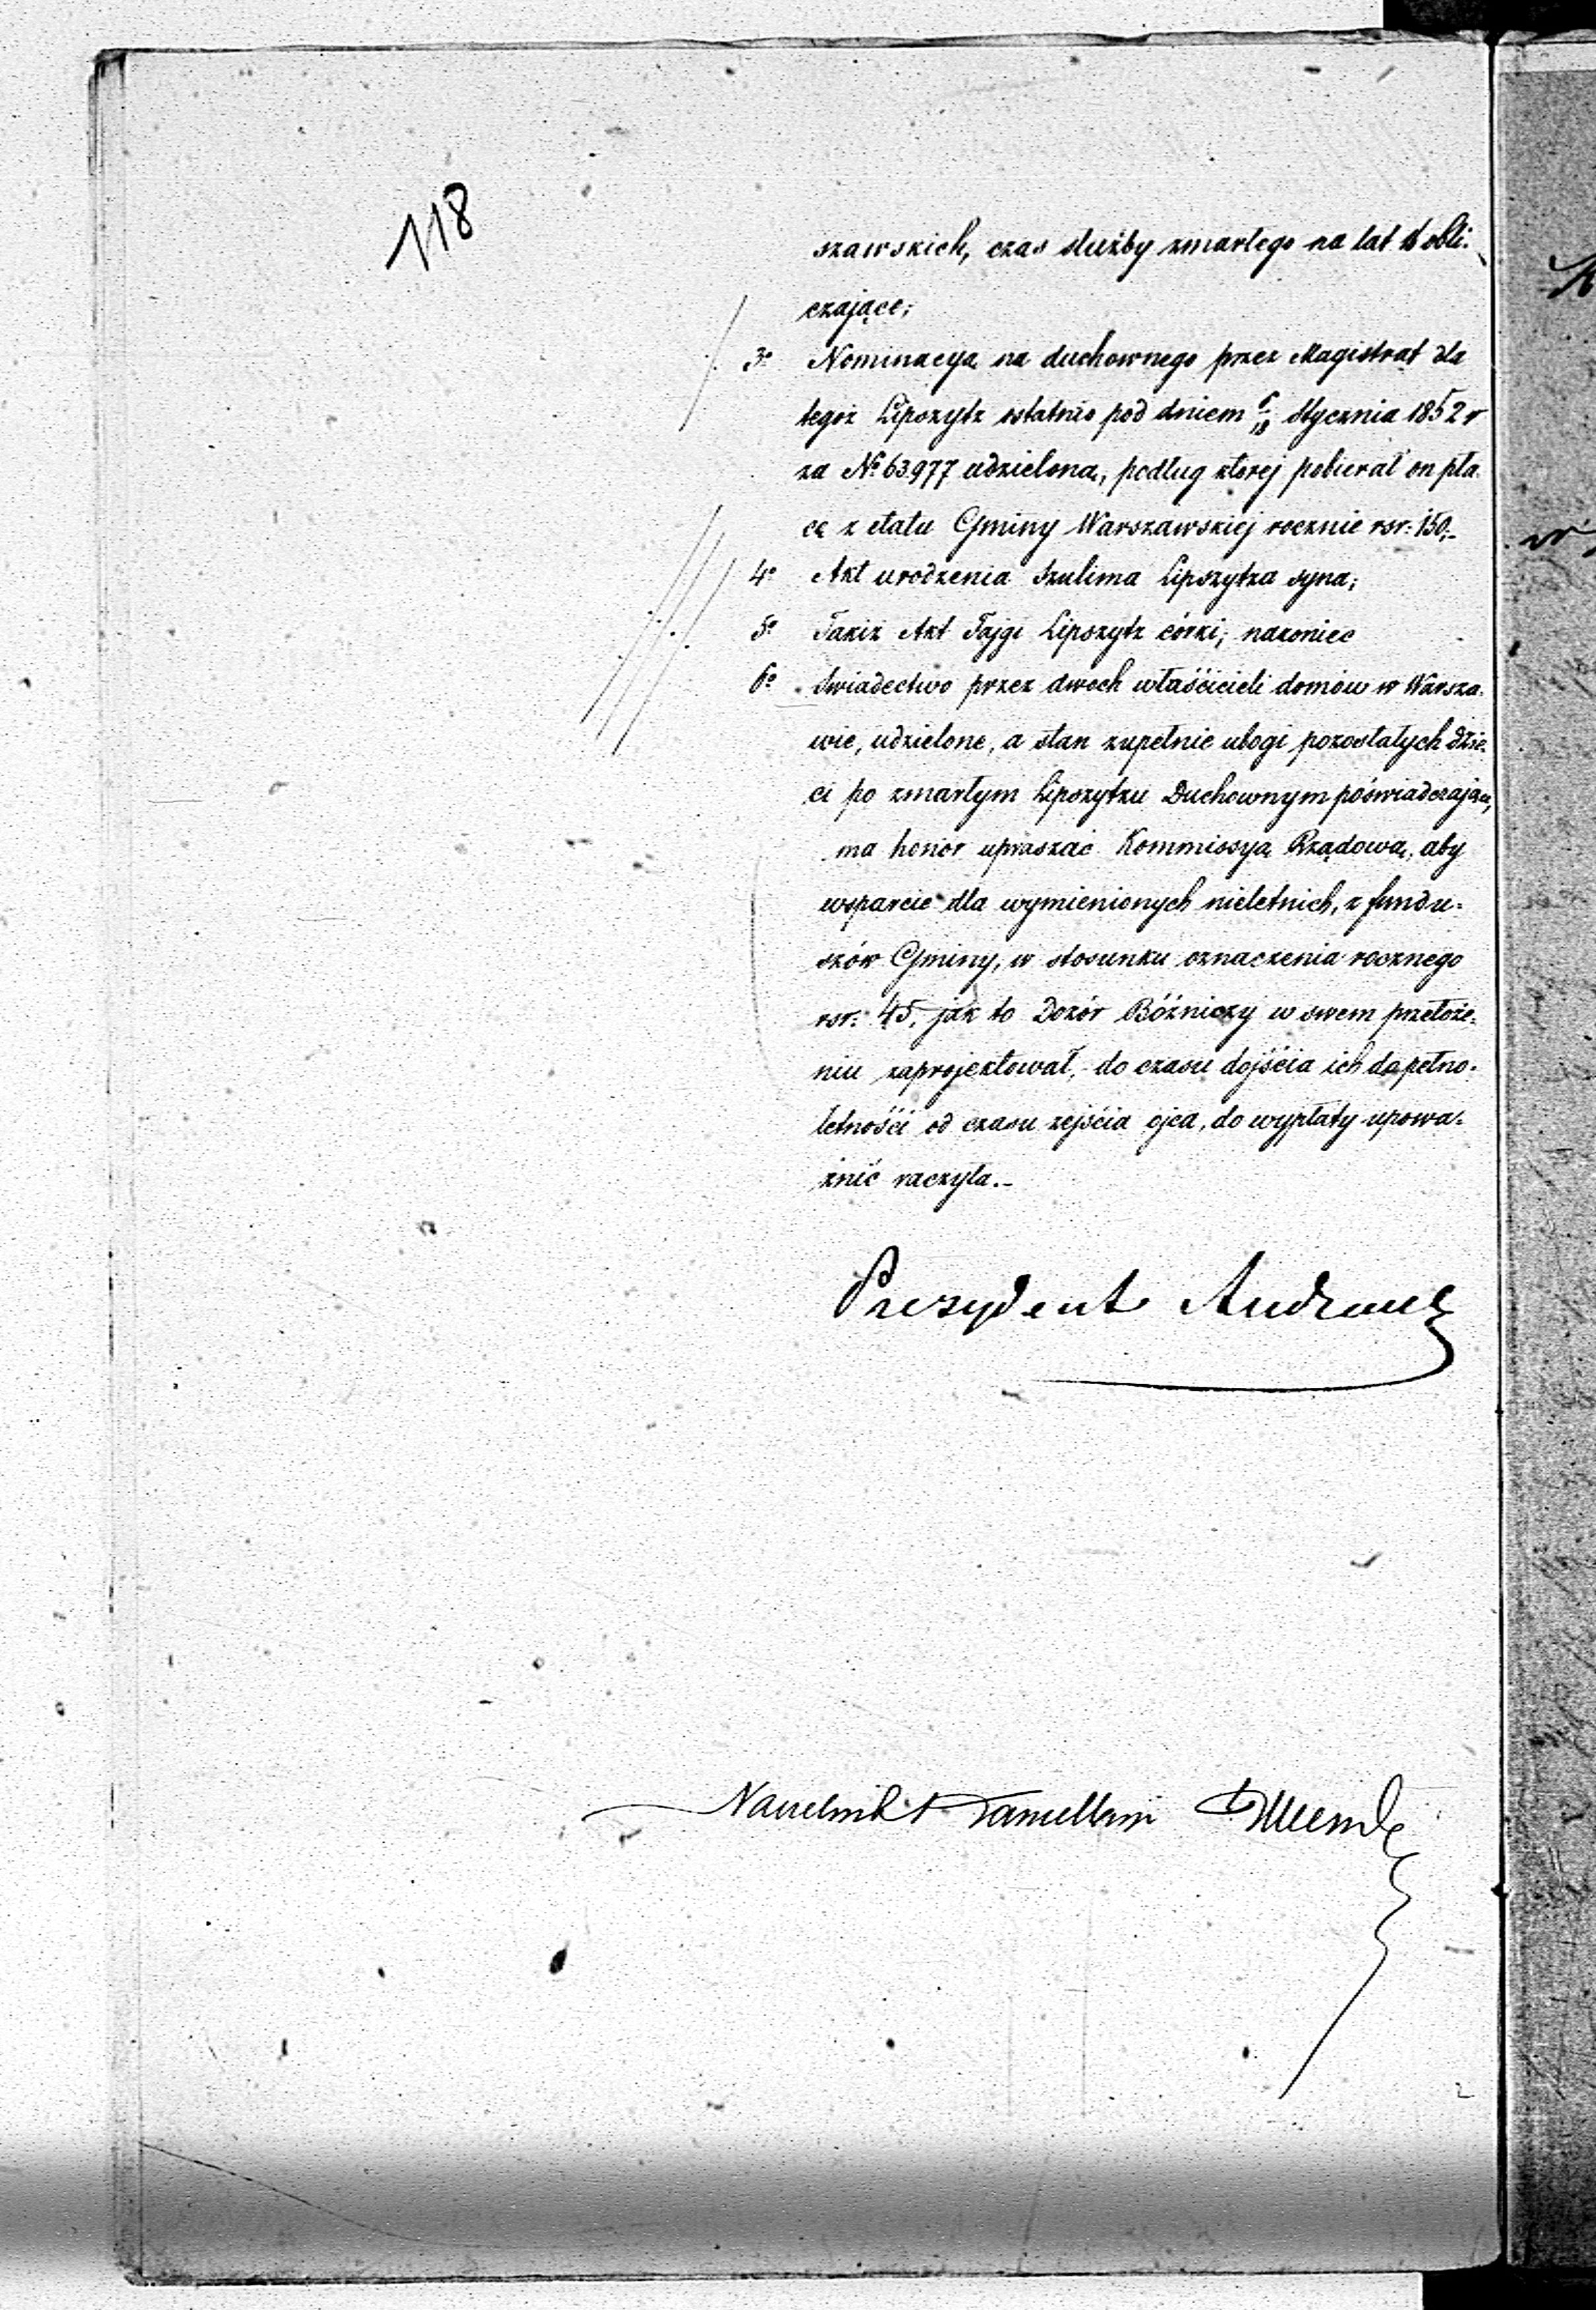 118
szawskich, czas służby zmarłego na lat obli-
czające;
3o Nominacya na duchownego przez Magistrat dla
tegoż Lipszytz ostatnio pod dniem 6/18 Stycznia 1852 r
za No 63977 udzielona, podług której pobierał on pła-
cę z etatu Gminy Warszawskiej rocznie rsr: 150,-
4o Akt urodzenia Szulima Lipszytza syna;
5o Takiż Akt Fajgi Lipszytz córki; nakoniec
6o Świadectwo przez dwóch właścicieli domów w Warsza-
wie, udzielone, a stan zupełnie ubogi pozostałych dzie-
ci po zmarłym Lipszytzu Duchownym poświadczające,
ma honor upraszać Kommissyą Rządową, aby
wsparcie dla wymienionych nieletnich, z fundu-
szów Gminy, w stosunku oznaczenia rocznego
rsr: 45, jak to Dozór Bóżniczy w swem przełoże-
niu zaprojektował, do czasu dojścia ich do pełno-
letności od czasu zejścia ojca, do wypłaty upowa-
żnić raczyła.-
Prezydent Andrault
Naczelnik Kancellaryi